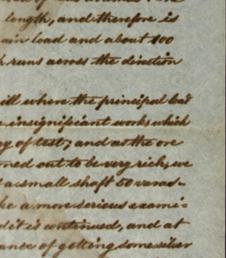 length, and therefore is
ain load and about 100
runs across the direction
ill where the principal lod
insignificant works which
y of test; and as the ore
ned out to be very rich, we
a small shaft 50 varas-
ke a more serious exami=
it is continued, and at
ance of getting some silver